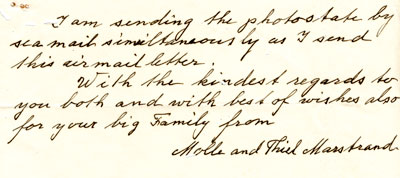 I am sending the photostate by
sea mail simultaneously as I send
this air mail letter.
With the kindest regards to
you both and with best of wishes also
for your big Family from
Molle and Thiel Marstrand